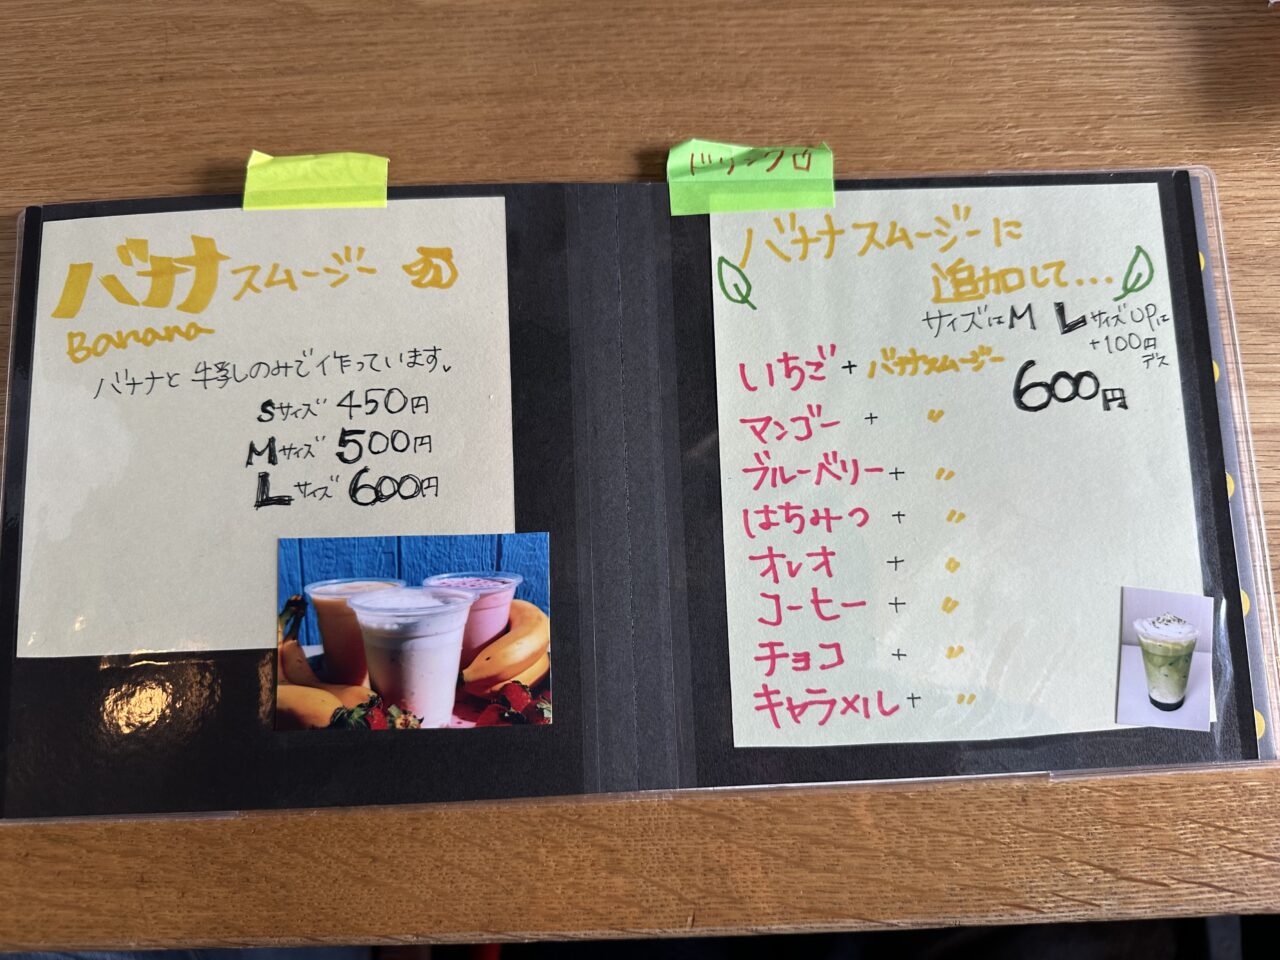 バナナスムージー
Banana
バナナと牛乳のみで作っています。
Sサイズ 450円
Mサイズ 500円
Lサイズ 600円
ドリンク
バナナスムージーに
追加して...
サイズはM LサイズUPは
+100円
デス
いちご + バナナスムージー 600円
マンゴー + 〃
ブルーベリー + 〃
はちみつ + 〃
オレオ + 〃
コーヒー + 〃
チョコ + 〃
キャラメル + 〃